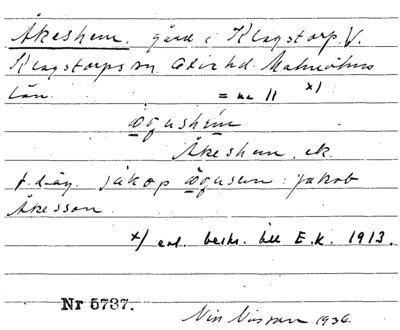 Åkeshem. gård i Klagstorp V.
Klagstorps sn. Oxie hd. Malmöhus
län. = nr 11 x)
ǫgushem
Åkeshem. ek.
f. d. äg. jákop ǫgusen: Jakob
Åkesson
x) enl. beskr. till E.K. 1913.
Nr 5737.
Nils Nilsson 1936.